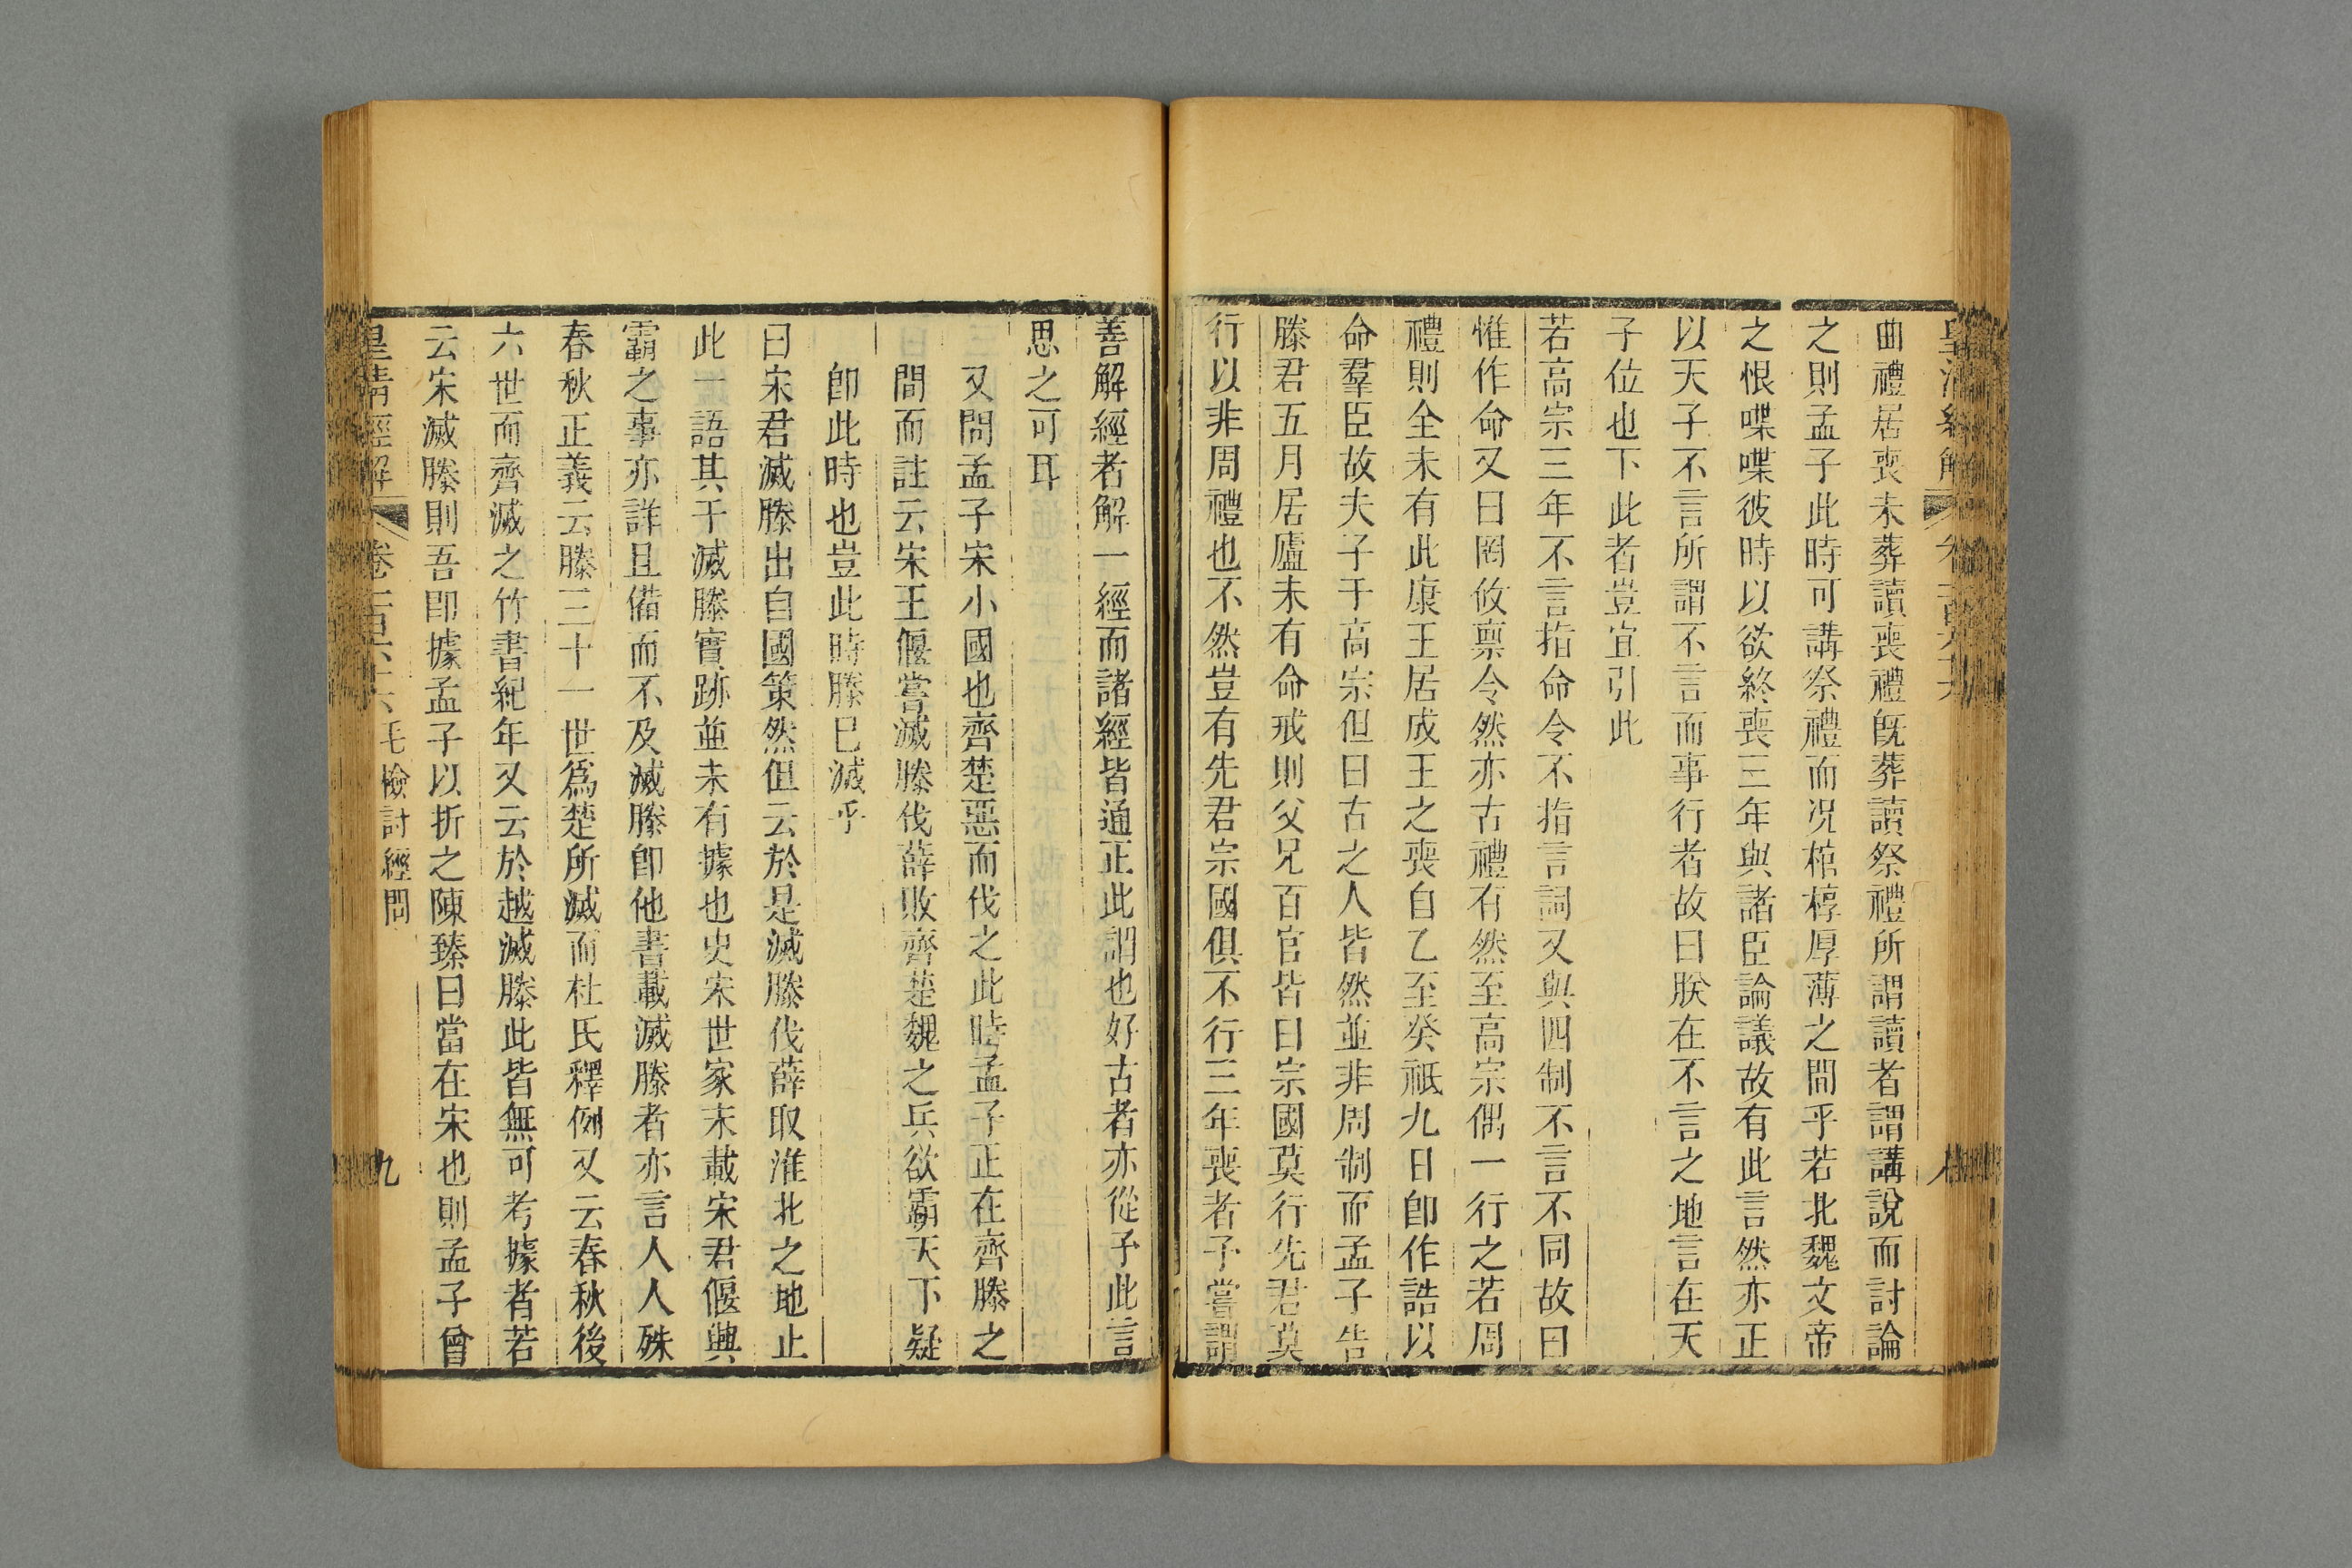 曲禮居喪未葬讀喪禮旣葬讀祭禮所謂讀者謂講說而討論
之則孟子此時可講祭禮而况棺椁厚薄之間乎若北魏文帝
之恨喋喋彼時以欲終喪三年與諸臣論議故有此言然亦正
以天子不言所謂不言而事行者故曰朕在不言之地言在天
子位也下此者豈宜引此
若高宗三年不言指命令不指言詞又與四制不言不同故曰
惟作命又曰罔攸禀令然亦古禮有然至高宗偶一行之若周
禮則全未有此康王居成王之喪自乙至癸祇九日卽作誥以
命羣臣故夫子于高宗但曰古之人皆然並非周制而孟子告
滕君五月居廬未有命戒則父兄百官皆曰宗國莫行先君莫
行以非周禮也不然豈有先君宗國俱不行三年喪者予嘗謂
善解經者解一經而諸經皆通正此謂也好古者亦從予此言
思之可耳
又問孟子宋小國也齊楚惡而伐之此時孟子正在齊滕之
間而註云宋王偃嘗滅滕伐薛敗齊楚魏之兵欲霸天下疑
卽此時也豈此時滕已滅乎
曰宋君滅滕出自國策然但云於是滅滕伐薛取淮北之地止
此一語其于滅滕實跡並未有據也史宋世家末載宋君偃興
霸之事亦詳且備而不及滅滕卽他書載滅滕者亦言人人殊
春秋正義云滕三十一世爲楚所滅而杜氏釋例又云春秋後
六世而齊滅之竹書紀年又云於越滅滕此皆無可考據者若
云宋滅滕則吾卽據孟子以折之陳臻曰當在宋也則孟子曾
皇淸經解 卷一百六十六 毛檢討經問 九